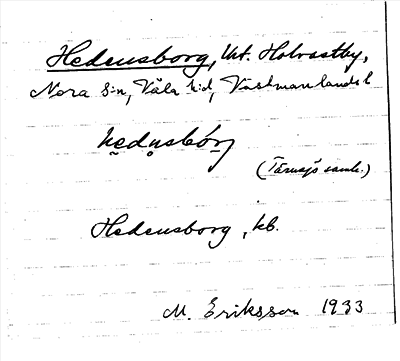 Hedensborg, Unt. Holvastby,
Nora s:n, Våla h:d, Västmanlands l
hedn̥sbórj
(Tärnsjö saml.)
Hedensborg, kb.
M. Eriksson 1933